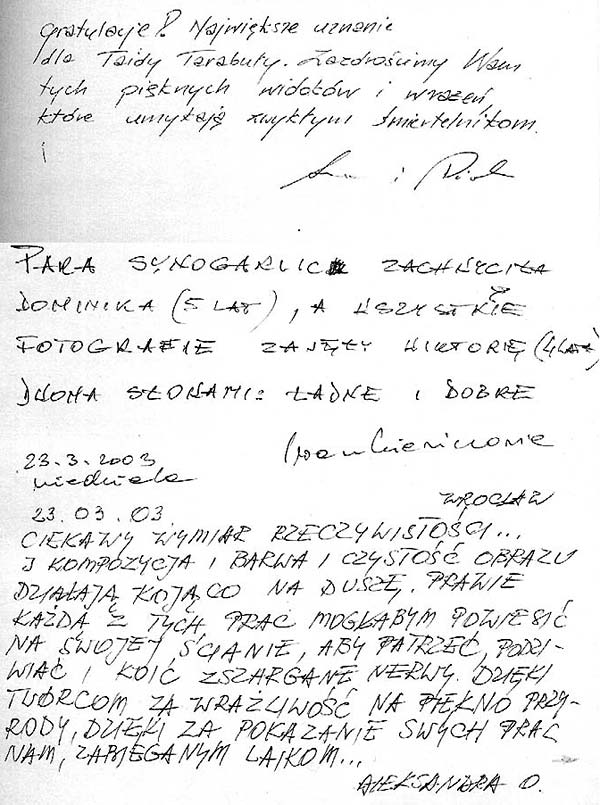 Gratulacje! Największe uznanie
dla Taidy Tarabuły. Zazdrościmy Wam
tych pięknych widoków i wrażeń
które umykają zwykłym śmiertelnikom.
i
i
PARA SYNOGARLIC ZACHWYCIŁA
DOMINIKA (5 LAT), A WSZYSTKIE
FOTOGRAFIE ZAJĘŁY WIKTORIĘ (4 LAT)
DWOMA SŁOWAMI: ŁADNE I DOBRE
23.3.2003
niedziela
WROCŁAW
23.03.03
CIEKAWY WYMIAR RZECZYWISTOŚCI...
I KOMPOZYCJA I BARWA I CZYSTOŚĆ OBRAZU
DZIAŁAJĄ KOJĄCO NA DUSZĘ. PRAWIE
KAŻDĄ Z TYCH PRAC MOGŁABYM POWIESIĆ
NA SWOJEJ ŚCIANIE, ABY PATRZEĆ, PODZI-
WIAĆ I KOIĆ ZSZARGANE NERWY. DZIĘKI
TWÓRCOM ZA WRAŻLIWOŚĆ NA PIĘKNO PRZY-
RODY, DZIĘKI ZA POKAZANIE SWYCH PRAC
NAM, ZABIEGANYM LAIKOM...
ALEKSANDRA O.